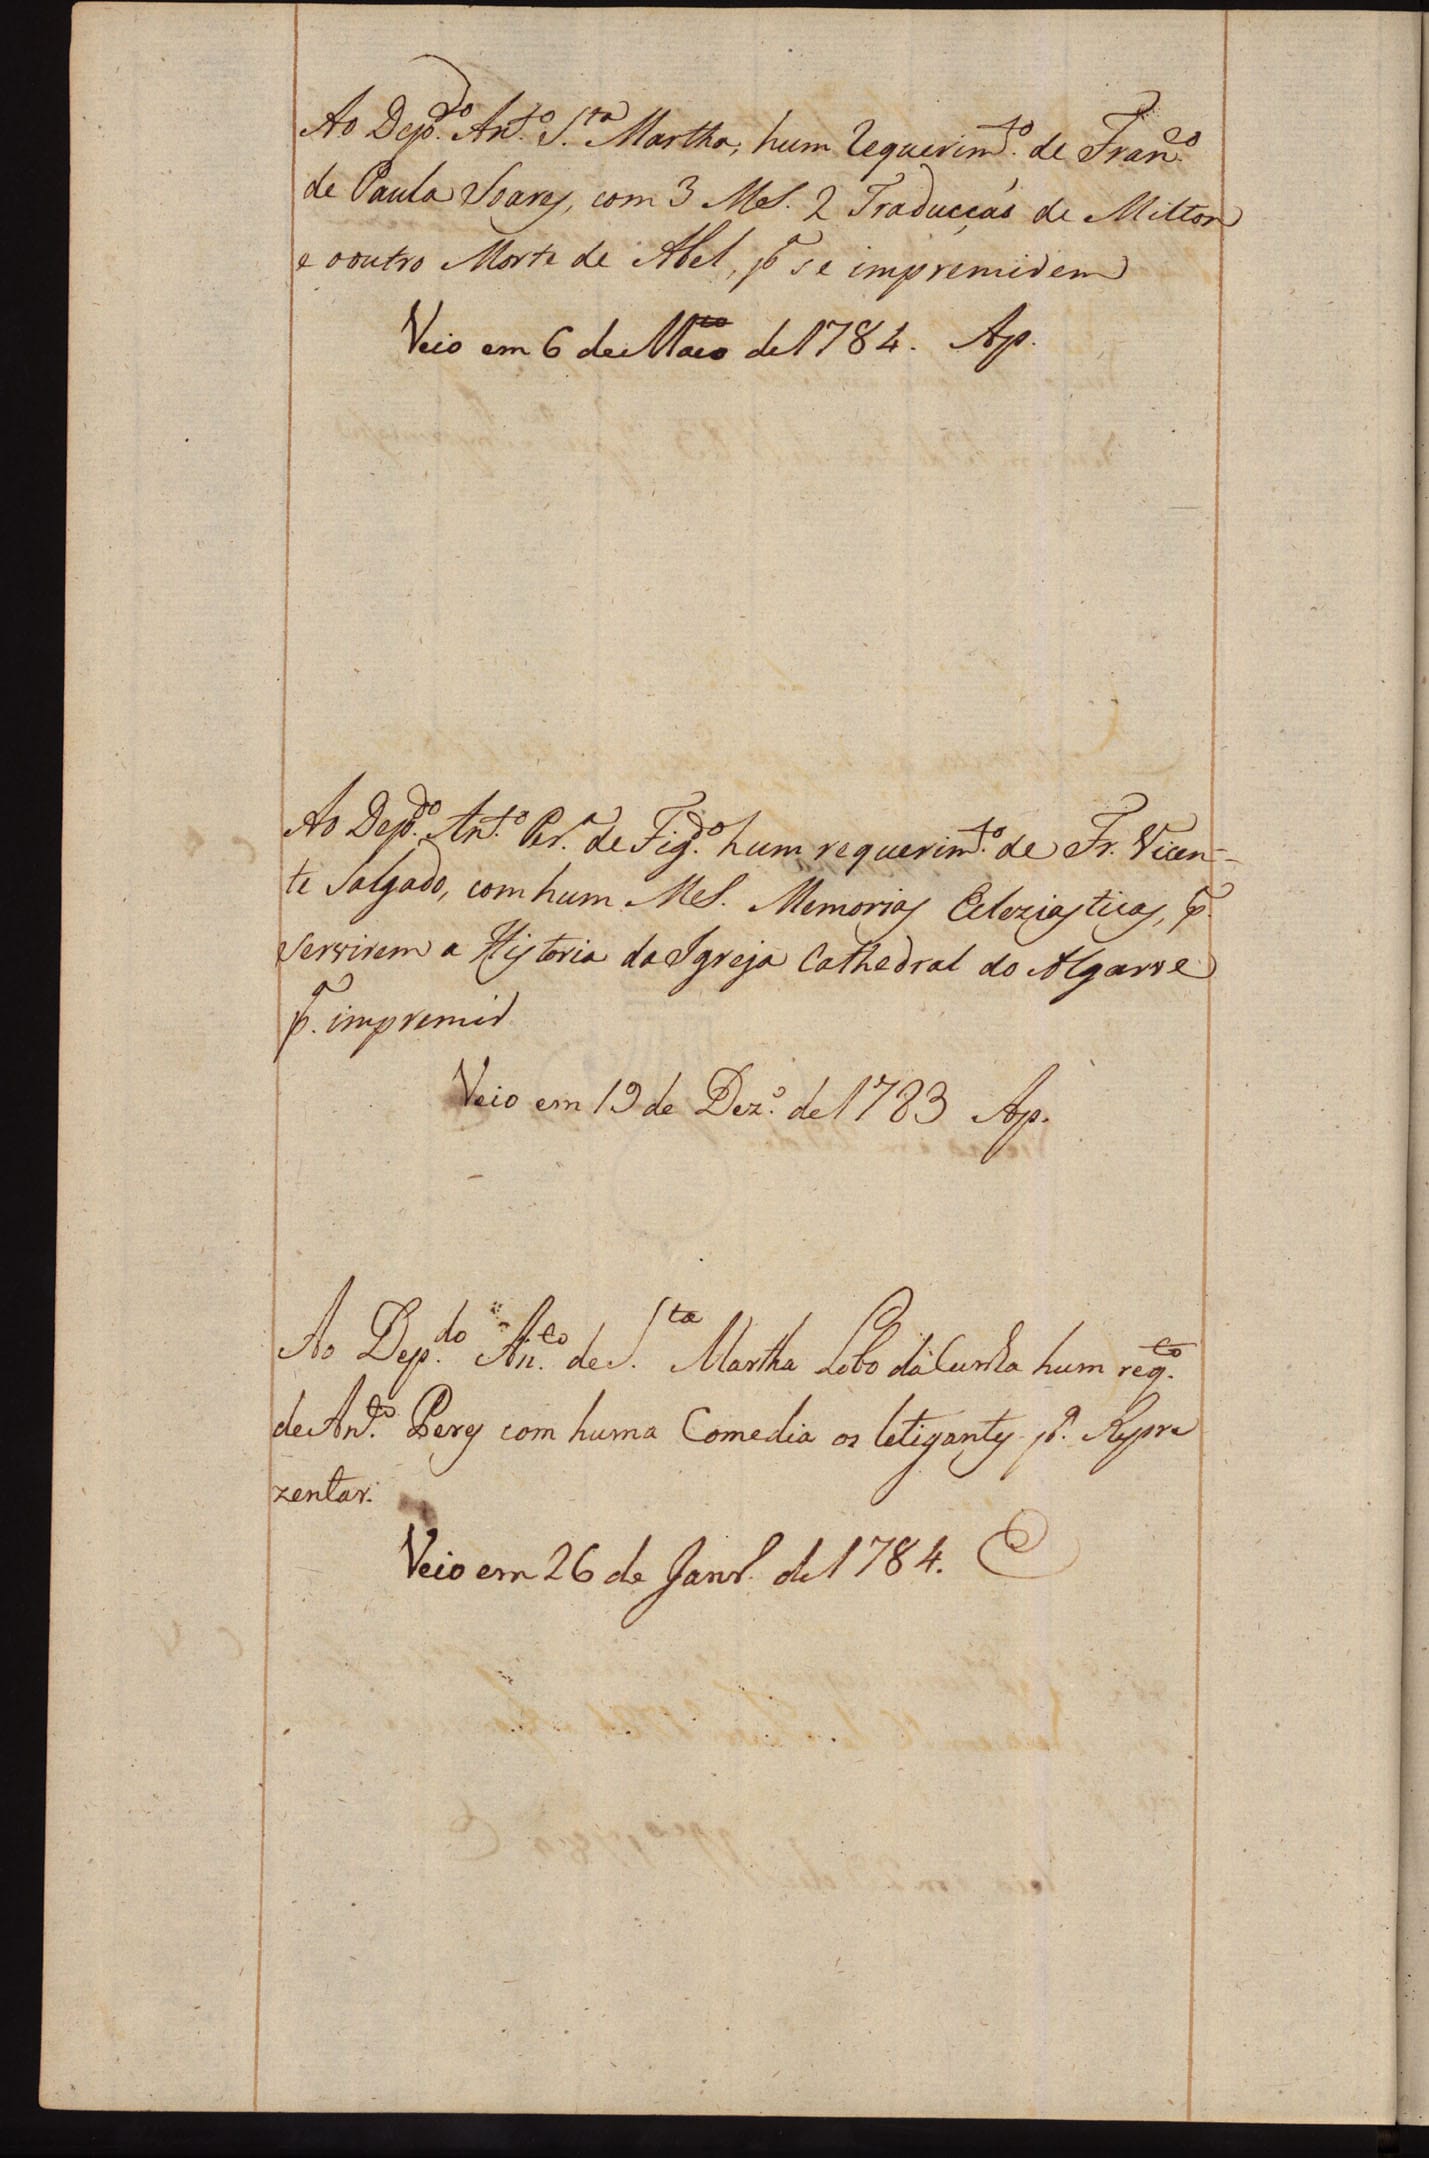 Ao Dep.do Ant.o S.ta Martha, hum requerim.to de Fran.co
de Paula Soares, com 3 MS. 2 Traducçaõ de Milton
e o outro Morte de Abel, p.a se impremirem
Veio em 6 de Março de 1784. Ap.
Ao Dep.do Ant.o Per.a de Fig.do hum requerim.to de Fr. Vicen-
te Salgado, com hum MS. Memorias Ecleziasticas, p.a
servirem a Historia da Igreja Cathedral do Algarve
p.a impremir
Veio em 19 de Dez.o de 1783 Ap.
Ao Dep.do An.to de S.ta Martha Lobo da Cunha hum req.to
de An.to Peres com huma Comedia os letigantes p.a Repre
zentar.
Veio em 26 de Janr.o de 1784.